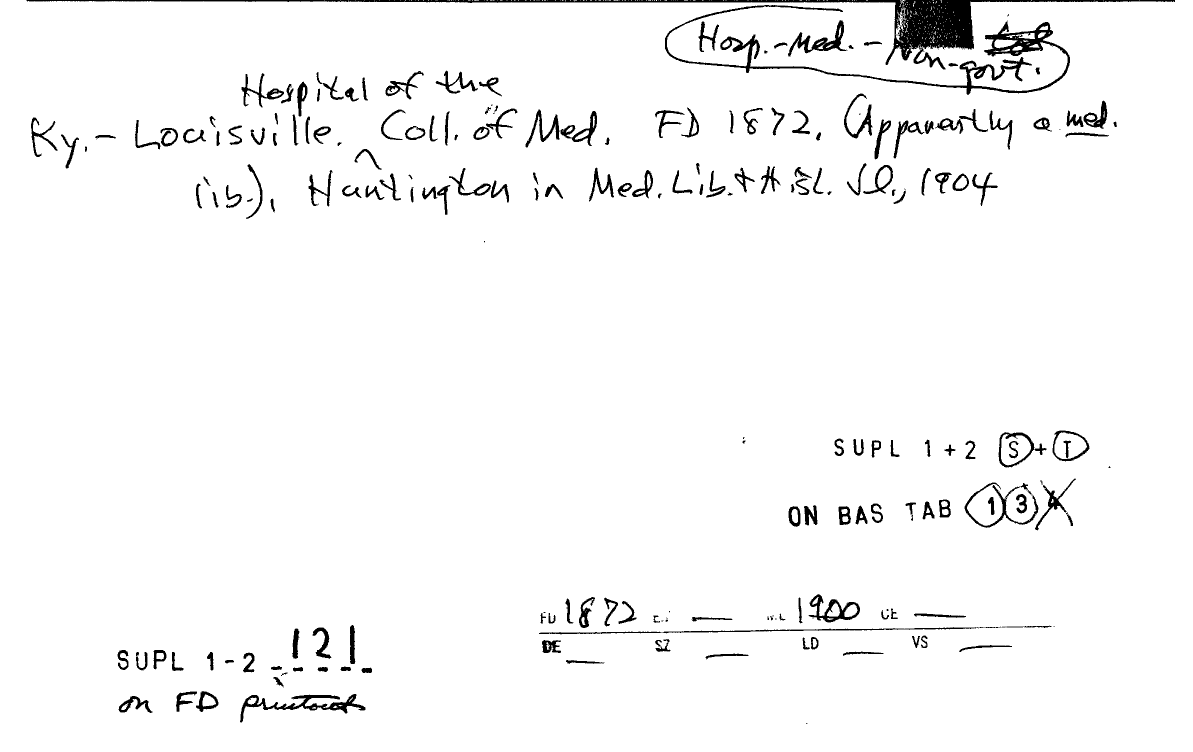 Hosp.-Med.-Non-govt.
Hospital of the
Ky.- Louisville. ^ Coll. of Med. FD 1872. (Apparently a med.
lib.). Huntington in Med. Lib. + Hist. Jl., 1904
SUPL 1+2 S+T
ON BAS TAB 1 3
FD 1872 — 1900 CE —
DE — SZ — LD — VS —
SUPL 1-2 121
on FD printout